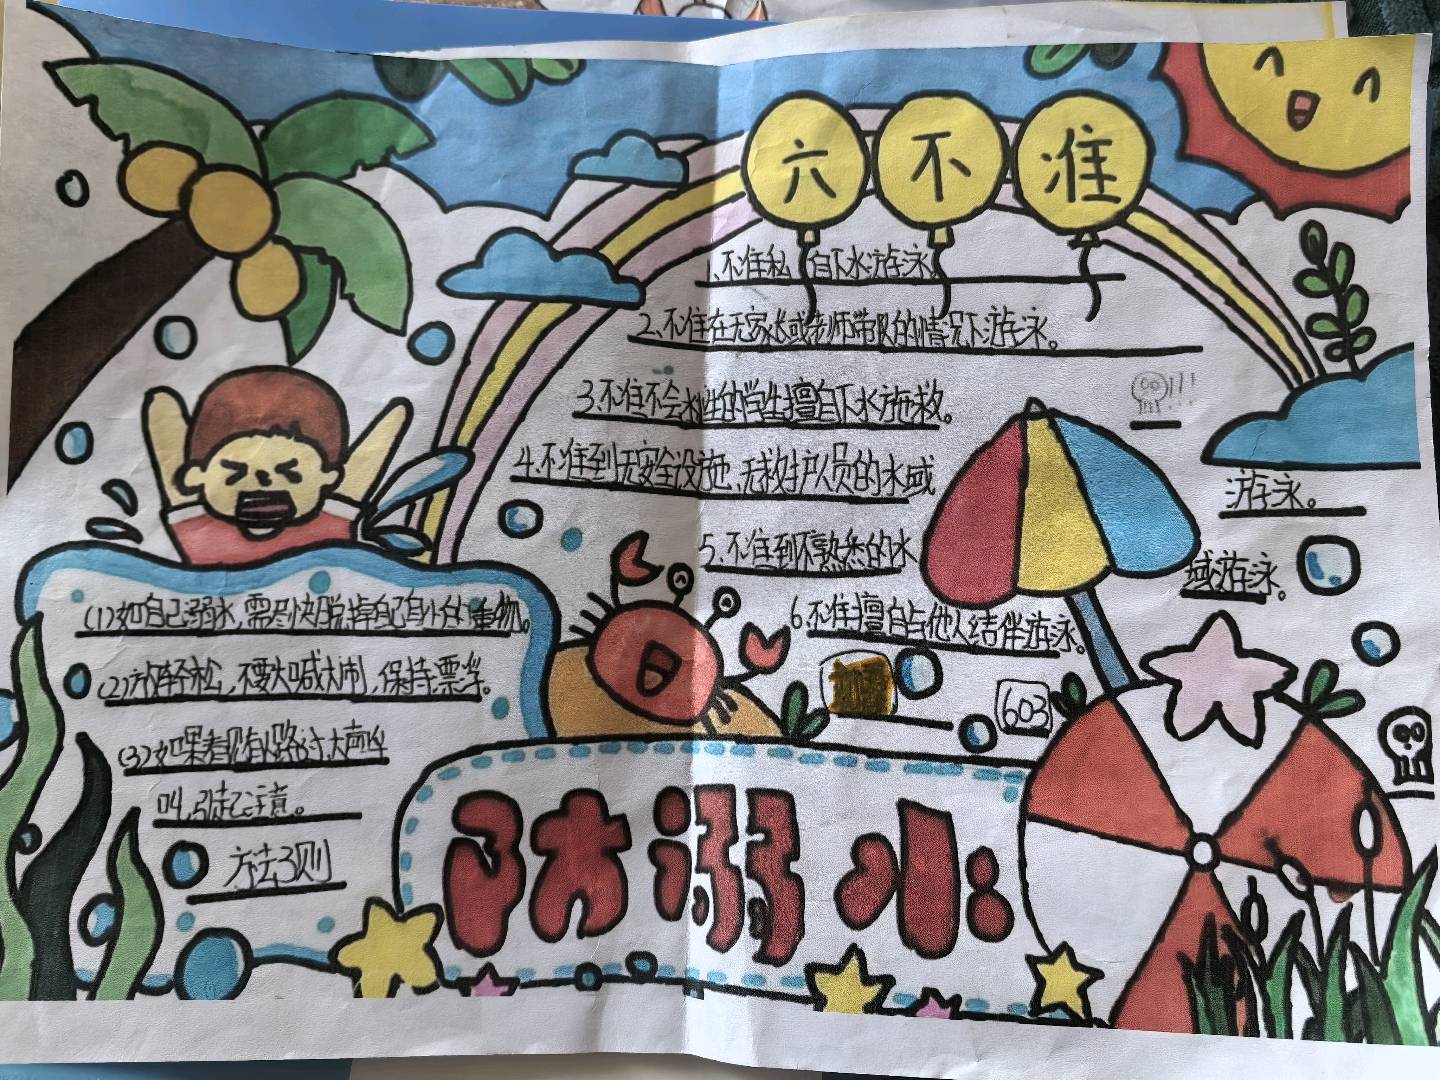 六不准
1.不准私自下水游泳
2.不准在无家长或老师带队的情况下游泳。
3.不准不会水性的学生擅自下水施救。
4.不准到无安全设施、无救生人员的水域
游泳。
5.不准到不熟悉的水
域游泳。
6.不准擅自与他人结伴游泳。
603
(1)如自己溺水,需尽快脱掉自己身上的重物。
(2)放轻松,不要大喊大闹,保持漂浮。
(3)如果看见有路过,大声呼
叫,引起注意。
方法3则
防溺水